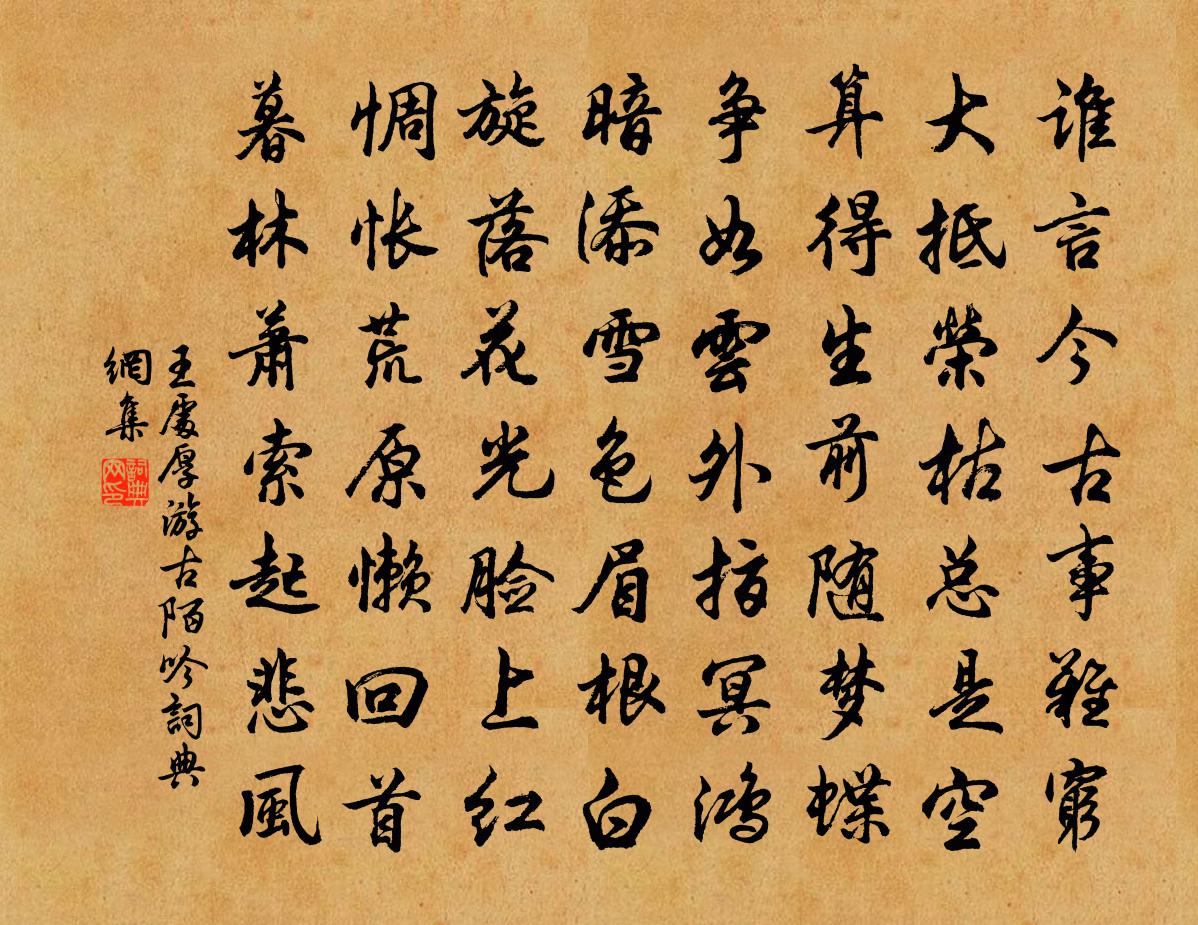 谁言今古事難窮
大抵榮枯总是空
算得生前随梦蝶
争如雲外指冥鴻
暗添雪色眉根白
旋落花光脸上红
惆怅荒原懒回首
暮林萧索起悲風
王處厚游古陌吟詞典
網集
詞典
网印